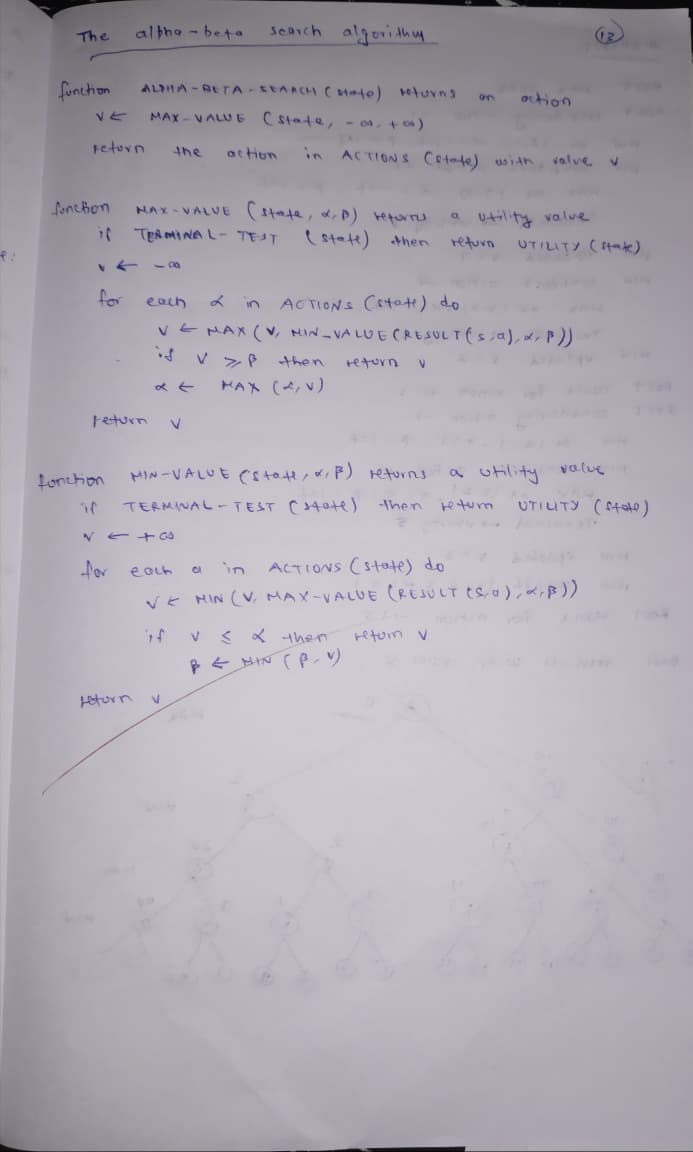 The alpha-beta search algorithm
12
function ALPHA-BETA-SEARCH (state) returns an action
v ← MAX-VALUE (state, -∞, +∞)
return the action in ACTIONS (state) with value v
function MAX-VALUE (state, α, β) returns a utility value
if TERMINAL-TEST (state) then return UTILITY (state)
v ← -∞
for each α in ACTIONS (state) do
v ← MAX (v, MIN-VALUE (RESULT (s,a), α, β))
if v ≥ β then return v
α ← MAX (α, v)
return v
function MIN-VALUE (state, α, β) returns a utility value
if TERMINAL-TEST (state) then return UTILITY (state)
v ← +∞
for each a in ACTIONS (state) do
v ← MIN (v, MAX-VALUE (RESULT (s,a), α, β))
if v ≤ α then return v
β ← MIN (β, v)
return v